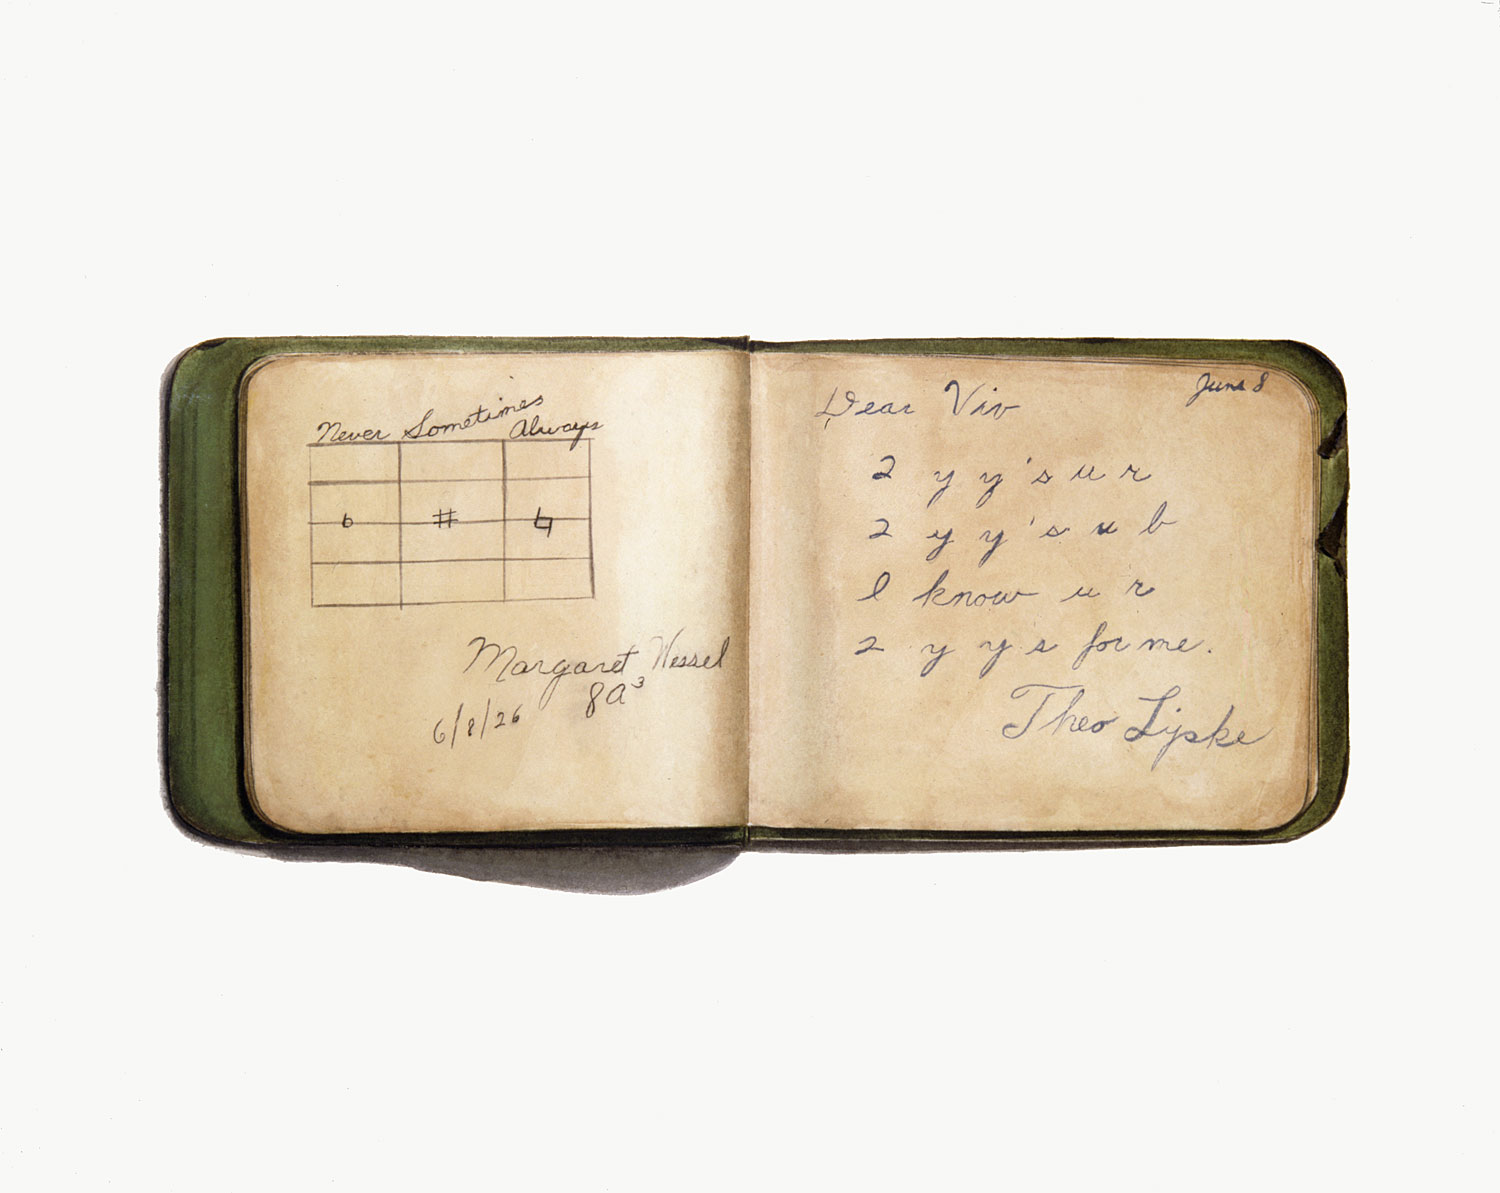 Never Sometimes Always
♭ # ♮
Margaret Wessel
8A³
6/8/26
June 8
Dear Viv
2 y y's u r
2 y y's u b
I know u r
2 y y s for me.
Theo Lipske